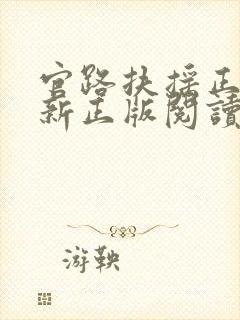 官路扶摇正
新正版閱讀
游鞅